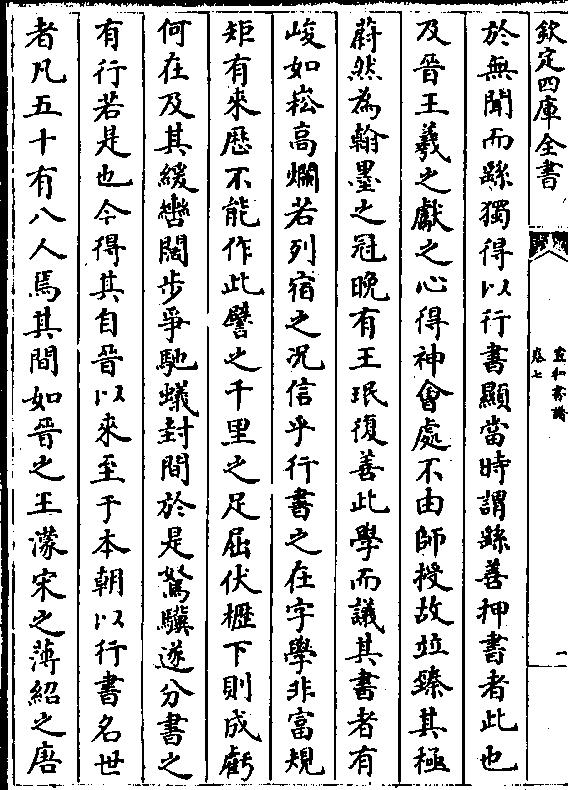 欽定四庫全書
宣和書譜
卷七
一
於無聞而繇獨得以行書顯當時謂繇善押書者此也
及晉王羲之獻之心得神會處不由師授故竝臻其極
蔚然為翰墨之冠晚有王珉復善此學而議其書者有
峻如崧高爛若列宿之況信乎行書之在字學非富規
矩有来歴不能作此譬之千里之足屈伏櫪下則成虧
何在及其緩轡闊步爭馳蟻封間於是駑驥遂分書之
有行若是也今得其自晉以來至于本朝以行書名世
者凡五十有八人焉其間如晉之王濛宋之薄紹之唐